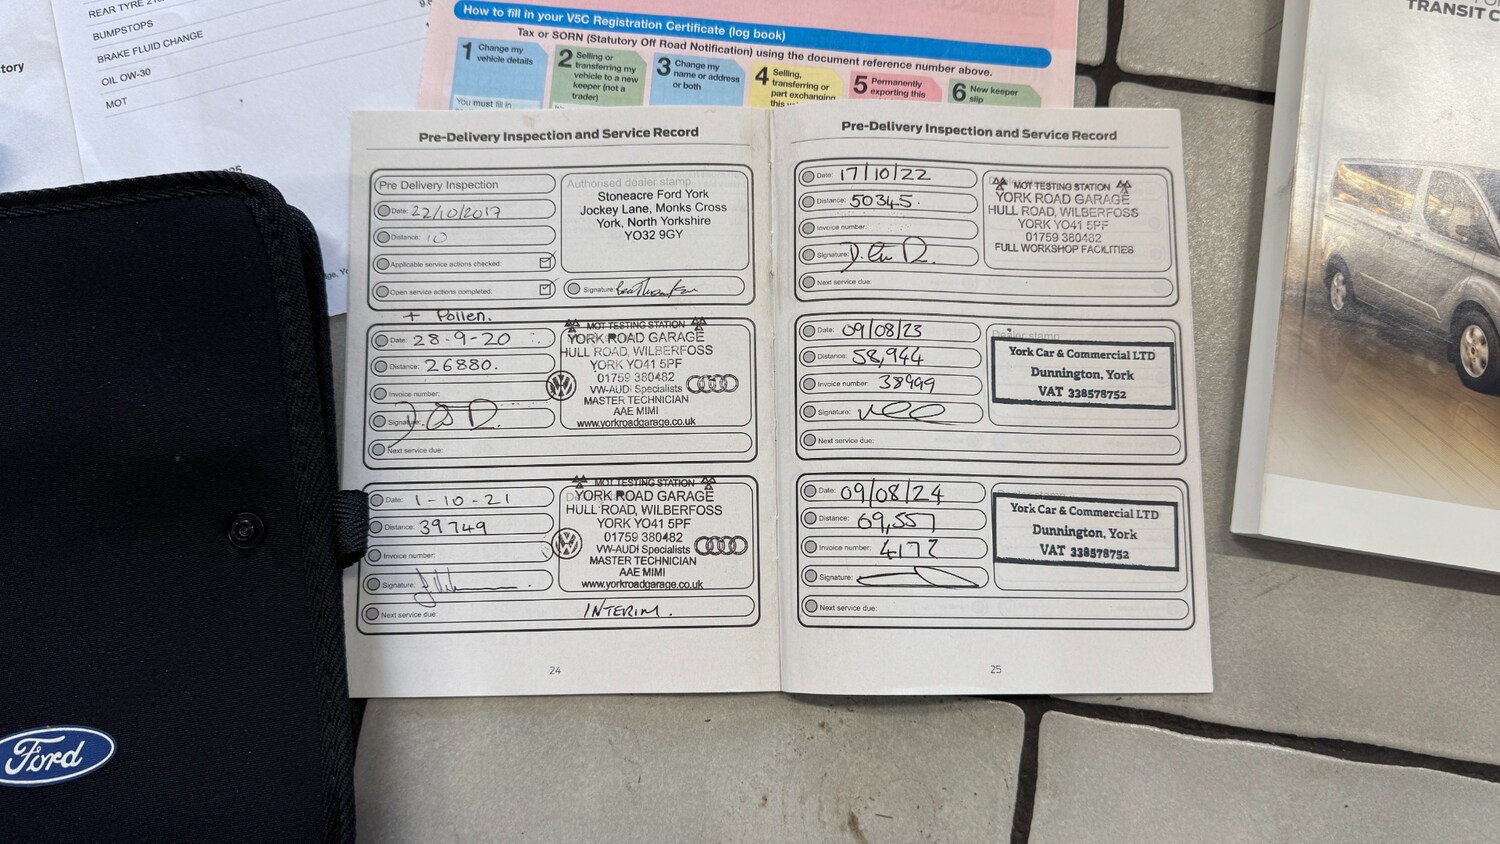 REAR TYRE
BUMPSTOPS
BRAKE FLUID CHANGE
OIL OW-30
MOT
tory
How to fill in your V5C Registration Certificate (log book)
Tax or SORN (Statutory Off Road Notification) using the document reference number above.
1 Change my vehicle details
You must fill in
2 Selling or transferring my vehicle to a new keeper (not a trader)
3 Change my name or address or both
4 Selling, transferring or part exchanging this
5 Permanently exporting this
6 New keeper slip
TRANSIT C
Pre-Delivery Inspection and Service Record
Pre Delivery Inspection
Date: 22/10/2017
Distance: 10
Applicable service actions checked:
Open service actions completed:
Authorised dealer stamp
Stoneacre Ford York
Jockey Lane, Monks Cross
York, North Yorkshire
YO32 9GY
Signature:
+ Pollen.
Date: 28-9-20
Distance: 26880.
Invoice number:
Signature:
Next service due:
MOT TESTING STATION
YORK ROAD GARAGE
HULL ROAD, WILBERFOSS
YORK YO41 5PF
01759 380482
VW-AUDI Specialists
MASTER TECHNICIAN
AAE MIMI
www.yorkroadgarage.co.uk
Date: 1-10-21
Distance: 39749
Invoice number:
Signature:
Next service due: INTERIM.
MOT TESTING STATION
YORK ROAD GARAGE
HULL ROAD, WILBERFOSS
YORK YO41 5PF
01759 380482
VW-AUDI Specialists
MASTER TECHNICIAN
AAE MIMI
www.yorkroadgarage.co.uk
24
Pre-Delivery Inspection and Service Record
Date: 17/10/22
Distance: 50345.
Invoice number:
Signature:
Next service due:
MOT TESTING STATION
YORK ROAD GARAGE
HULL ROAD, WILBERFOSS
YORK YO41 5PF
01759 380482
FULL WORKSHOP FACILITIES
Date: 09/08/23
Distance: 58,944
Invoice number: 38999
Signature:
Next service due:
Dealer stamp
York Car & Commercial LTD
Dunnington, York
VAT 338578752
Date: 09/08/24
Distance: 69,557
Invoice number: 4172
Signature:
Next service due:
York Car & Commercial LTD
Dunnington, York
VAT 338578752
25
Ford